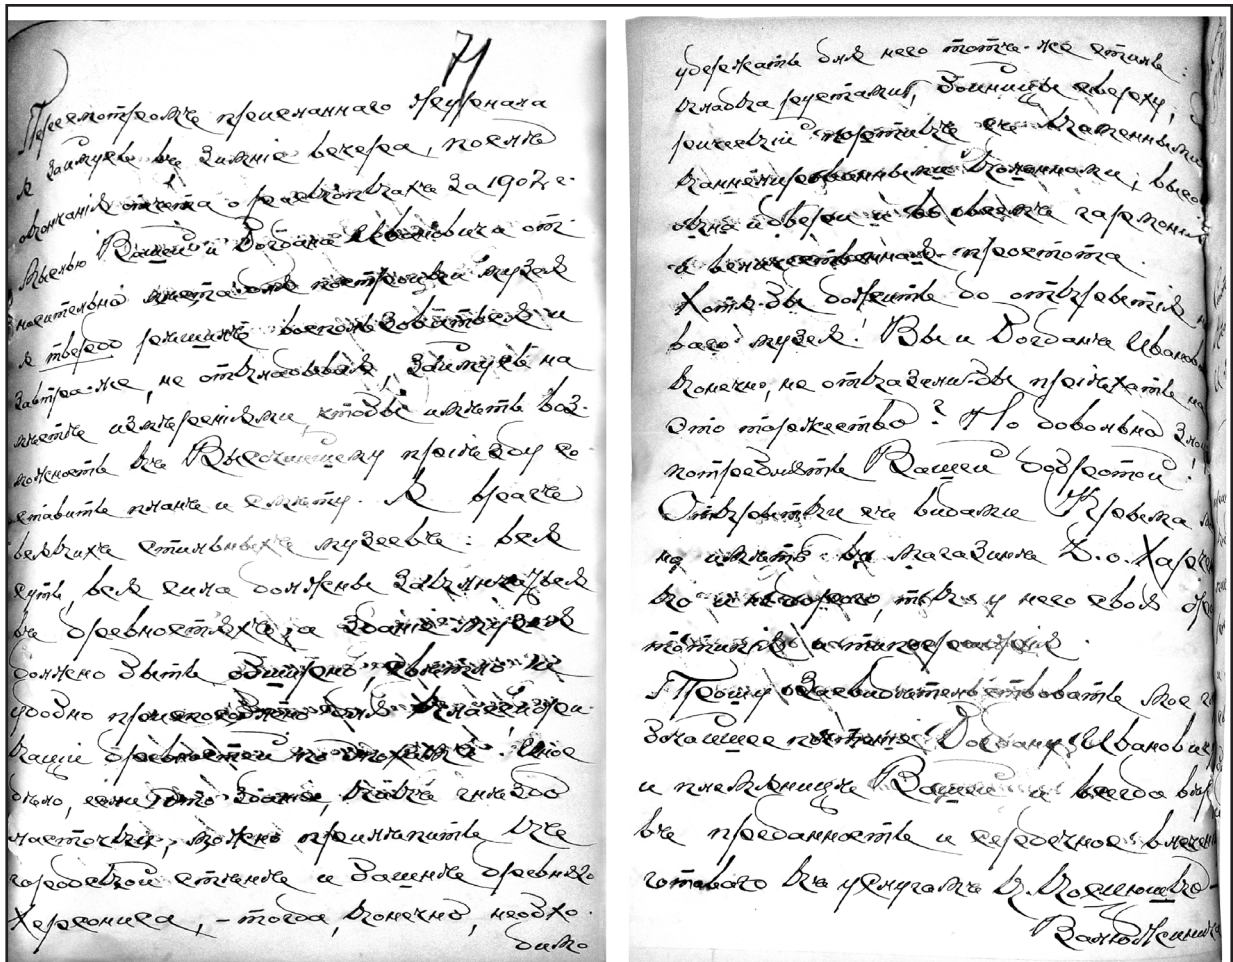 71
Пересмотромъ присланнаго журнала
я займусь въ зимніе вечера, послѣ
окончанія отчета о раскопкахъ за 1907 г.
Мыслью Вашей и Богдана Ивановича от-
носительно мѣста для постройки музея
я твердо рѣшилъ воспользоваться и
завтра-же, не откладывая, займусь на
мѣстѣ измѣреніями, чтобы имѣть воз-
можность къ Высочайшему пріѣзду со-
ставить планъ и смѣту. Я врагъ
всякихъ стильныхъ музеевъ: вся
суть, вся сила должны заключаться
въ древностяхъ, а зданіе музея
должно быть обширно, свѣтло и
удобно приспособлено для классифи-
каціи древностей по эпохамъ! Иное
дѣло, если это зданіе, какъ гнѣздо
ласточки, можно прилѣпить къ
городской стѣнѣ и башнѣ древняго
Херсонеса, - тогда, конечно, необхо-
димо
удержать для него тотъ-же стиль:
кладка рустами, бойницы сверху,
рическій портикъ съ каменными
каннелированными колоннами,
окна и двери и во всемъ гармонія
и величественная простота.
Хотя-бы дожить до открытія
ваго музея! Вы и Богданъ Иванов
конечно, не отказались-бы пріѣхать на
это торжество? Но довольно
потреблять Вашей добротой!
Открытки съ видами Крыма
но имѣть въ магазинѣ Х.о. Харче
ко и недорого, такъ у него своя
тотипія и типографія.
Прошу засвидѣтельствовать мое
бочайшее почтеніе Богдану Иванович
и племянницѣ Вашей и всегда
въ преданность и сердечное влечен
готоваго къ услугамъ К. Косцюшко-
Валюжинича